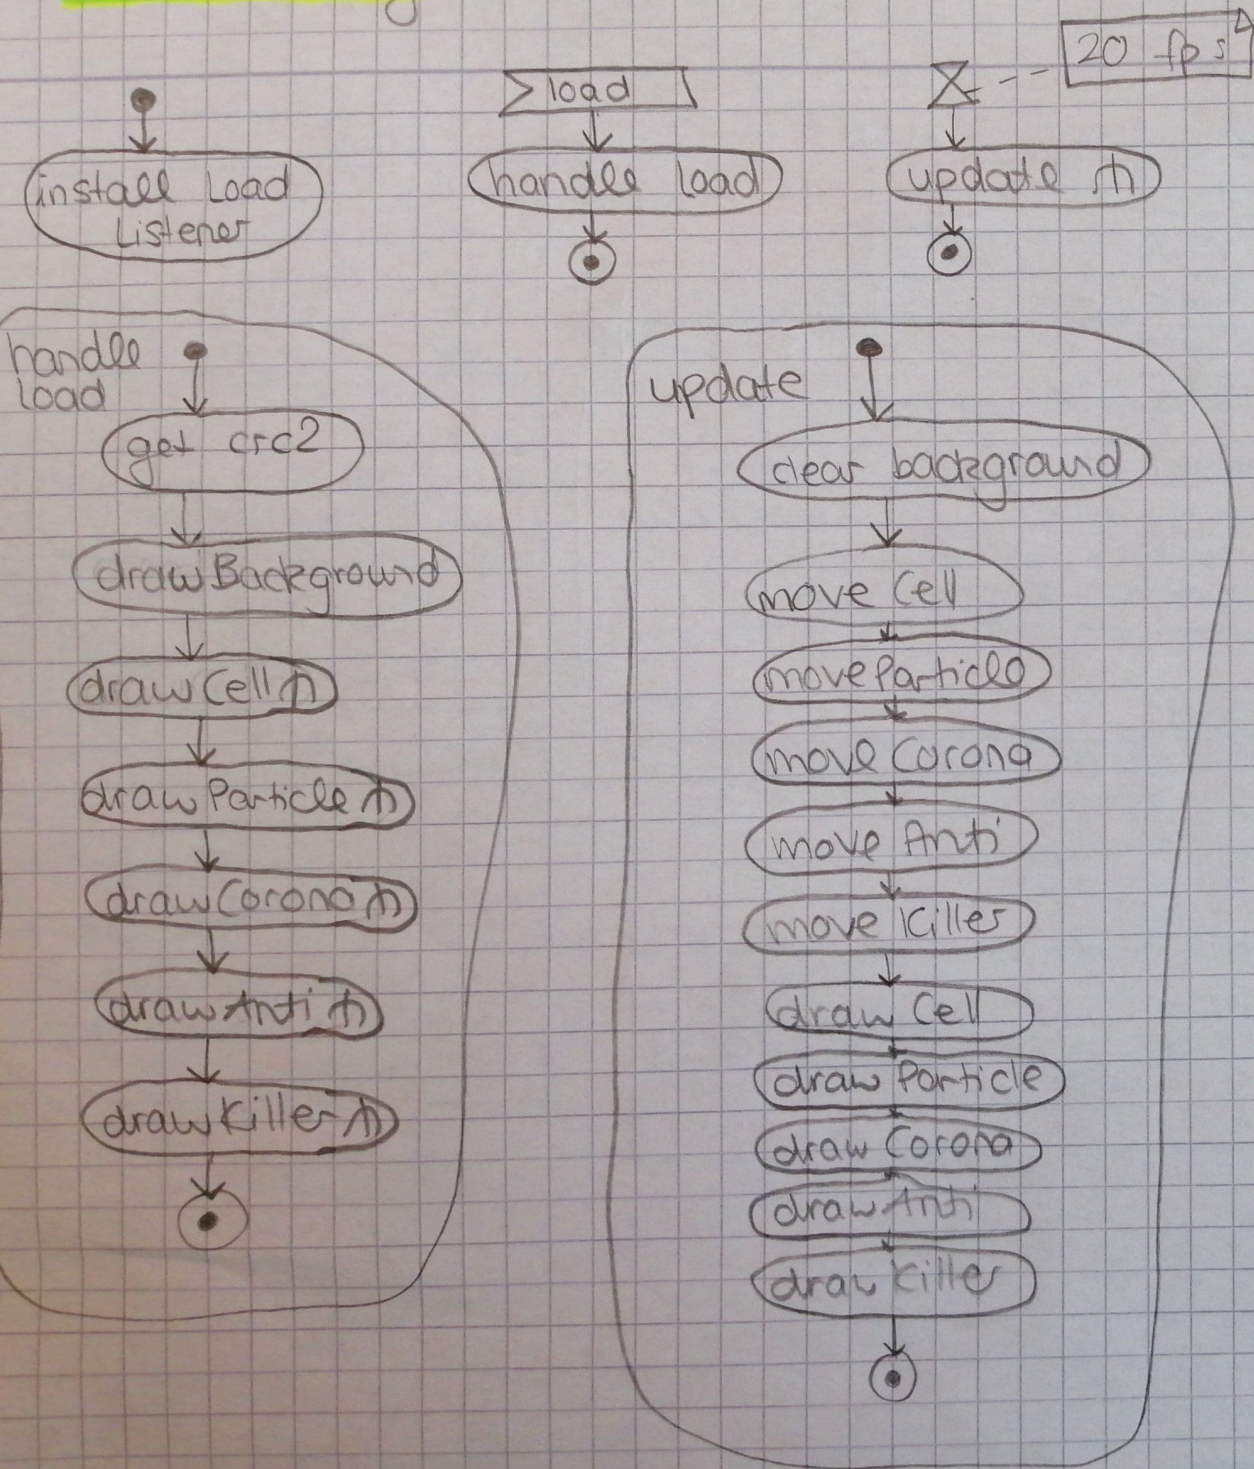 install Load
Listener
load
handle load
20 fps
update
handle
load
get crc2
drawBackground
drawCell
drawParticle
drawCorona
drawAnti
drawKiller
update
clear background
move Cell
moveParticle
move Corona
move Anti
move Killer
draw Cell
draw Particle
draw Corona
drawAnti
draw Killer